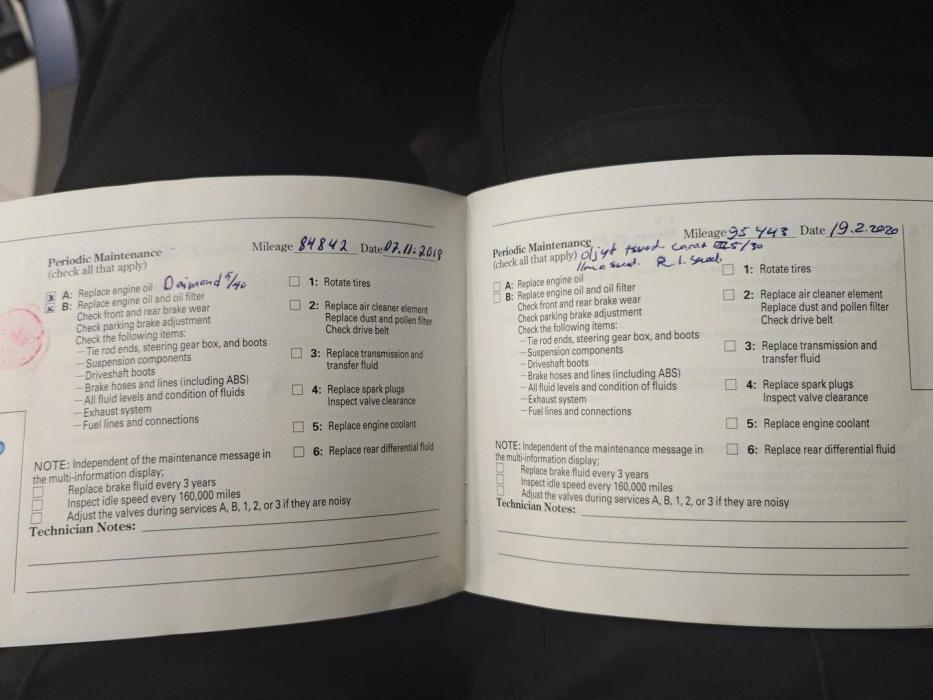 Periodic Maintenance
(check all that apply)
Mileage 84842 Date 07.11.2019
A: Replace engine oil 5/40
B: Replace engine oil and oil filter
Check front and rear brake wear
Check parking brake adjustment
Check the following items:
– Tie rod ends, steering gear box, and boots
– Suspension components
– Driveshaft boots
– Brake hoses and lines (including ABS)
– All fluid levels and condition of fluids
– Exhaust system
– Fuel lines and connections
1: Rotate tires
2: Replace air cleaner element
Replace dust and pollen filter
Check drive belt
3: Replace transmission and
transfer fluid
4: Replace spark plugs
Inspect valve clearance
5: Replace engine coolant
6: Replace rear differential fluid
NOTE: Independent of the maintenance message in
the multi-information display;
Replace brake fluid every 3 years
Inspect idle speed every 160,000 miles
Adjust the valves during services A, B, 1, 2, or 3 if they are noisy
Technician Notes:
Periodic Maintenance
(check all that apply)
Mileage 95 443 Date 19.2.2020
5/30
A: Replace engine oil
B: Replace engine oil and oil filter
Check front and rear brake wear
Check parking brake adjustment
Check the following items:
– Tie rod ends, steering gear box, and boots
– Suspension components
– Driveshaft boots
– Brake hoses and lines (including ABS)
– All fluid levels and condition of fluids
– Exhaust system
– Fuel lines and connections
1: Rotate tires
2: Replace air cleaner element
Replace dust and pollen filter
Check drive belt
3: Replace transmission and
transfer fluid
4: Replace spark plugs
Inspect valve clearance
5: Replace engine coolant
6: Replace rear differential fluid
NOTE: Independent of the maintenance message in
the multi-information display;
Replace brake fluid every 3 years
Inspect idle speed every 160,000 miles
Adjust the valves during services A, B, 1, 2, or 3 if they are noisy
Technician Notes: